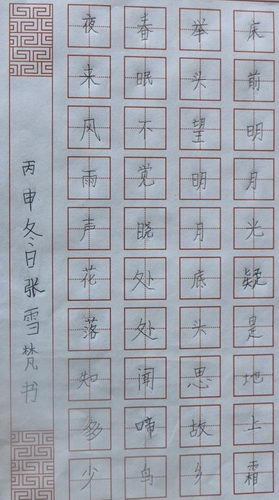 床前明月光疑是地上霜
举头望明月底头思故乡
春眠不觉晓处处闻啼鸟
夜来风雨声花落知多少
丙申冬日张雪梵书